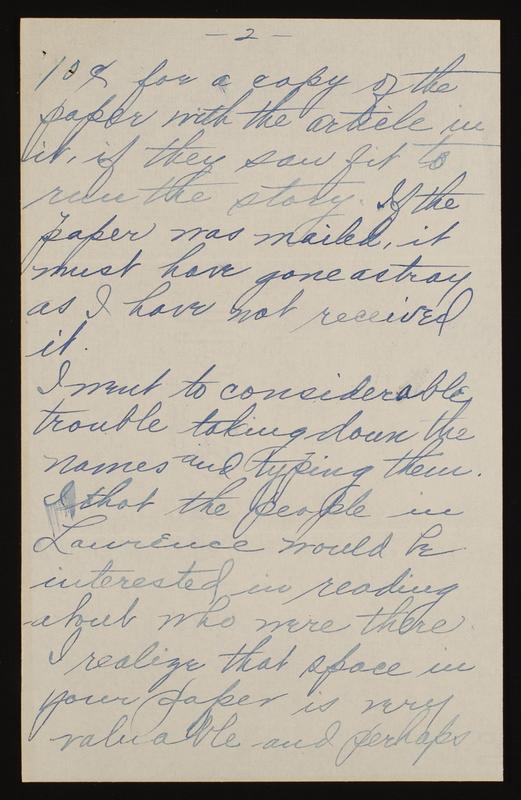 - 2 -
10¢ for a copy of the
paper with the article in
it, if they saw fit to
run the story. If the
paper was mailed, it
must have gone astray
as I have not received
it.
I went to considerable
trouble taking down the
names and typing them.
that the people in
Lawrence would be
interested in reading
about who were there.
I realize that space in
your paper is very
valuable and perhaps